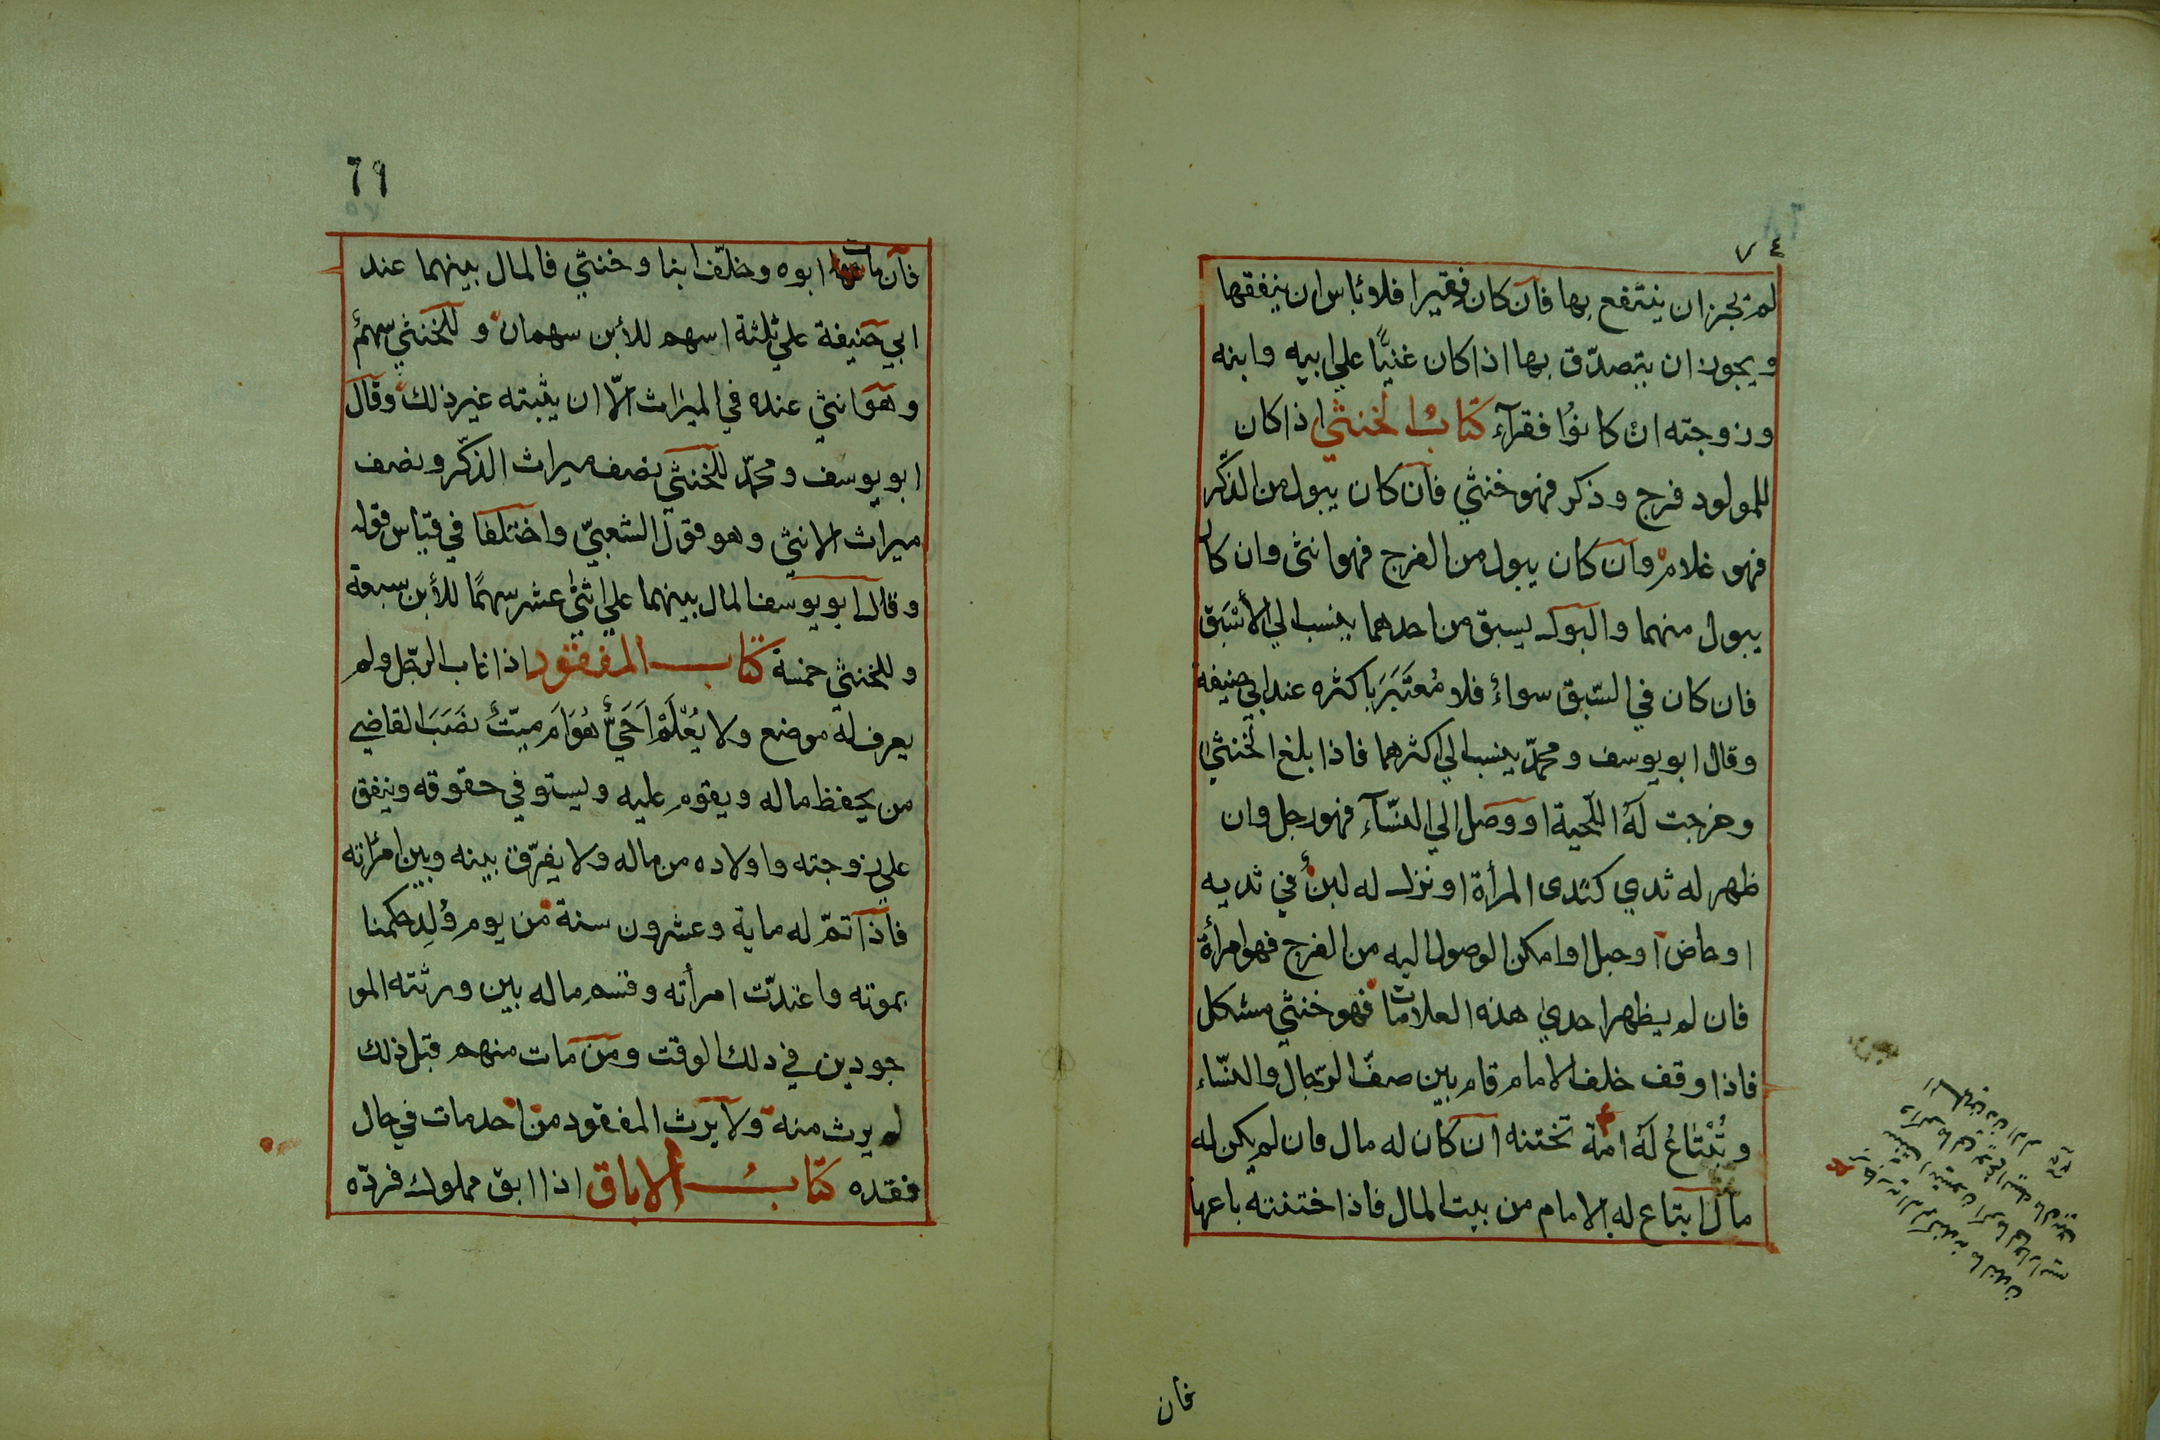 ٧٤
لم يجز ان ينتفع بها فان كان فقيرا فلا بأس ان ينفقها
ويجوز ان يتصدّق بها اذا كان غنيًّا علي ابيه وابنه
وزوجته ان كانوُا فقرآء كتابُ الخنثي اذا كان
للمولود فرج وذكر فهو خنثي فان كان يبول من الذّكر
فهو غلام وان كان يبول من الفرج فهو انثى وان كان
يبول منهما والبول يسبق من احدهما ينسب الي الأسْبَق
فان كان في السّبق سواءً فلا مُعتَبَرَ باكثره عند ابي حنيفة
وقال ابو يوسف ومحمّد ينسب الي اكثرهما فاذا بلغ الخنثي
وخرجت لَهُ اللّحية او وصل الي النسّآء فهو رجل وان
ظهر له ثدي كثدى المرأة او نزل له لبنٌ في ثديه
او حاض او حبل او امكن الوصول اليه من الفرج فهو امرأة
فان لم يظهر احدي هذه العلامات فهو خنثي مشكل
فاذا وقف خلف الامام قام بين صفّ الرّجال والنسّاء
وتُبْتاعُ لَهُ امة تختنه ان كان له مال فان لم يكن له
مال ابتاع له الامام من بيت المال فاذا ختنته باعها
فان
٦٩
فان مات ابوه وخلّف ابنا وخنثي فالمال بينهما عند
ابي حنيفة علي ثلثة اسهم للأبن سهمان وللخنثي سهمٌ
وهو انثي عنده في الميراث الّا ان يثبته غير ذلك وقال
ابو يوسف ومحمّد للخنثي نصف ميراث الذّكر ونصف
ميراث الانثي وهو قول الشعبيّ واختلفا في قياس قوله
وقال ابو يوسف المال بينهما علي اثنٰي عشر سهمًا للأبن سبعة
وللخنثي خمسة كتاب المفقود اذا غاب الرّجل ولم
يعرف له موضع ولا يُعْلَمْ اَحَيٌّ هُوَ اَم ميّتٌ نصَبَ القاضي
من يحفظ ماله ويقوم عليه ويستوفي حقوقه وينفق
علي زوجته واولاده من ماله ولا يفرّق بينه وبين امرأته
فاذا تتمّ له ماية وعشرون سنة من يوم وُلِد حكمنا
بموته واعتدّت امرأته وقسم ماله بين ورثته المو
جودين في ذلك الوقت ومن مات منهم قبل ذلك
لم يرث منه ولا يرث المفقود من احد مات في حال
فقده كتابُ الاباق اذا ابق مملوك فردّه